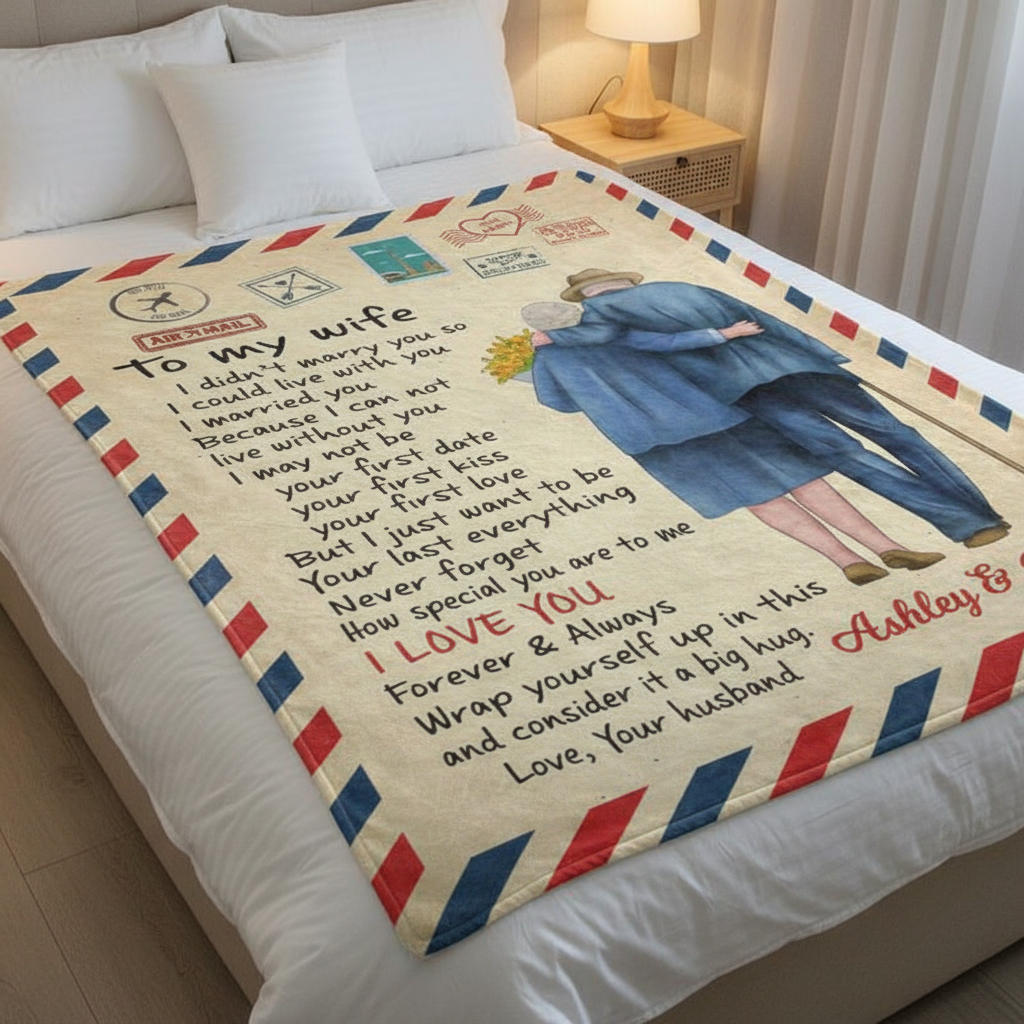 AIR MAIL
To my wife
I didn't marry you so
I could live with you
I married you
Because I can not
live without you
I may not be
your first date
your first kiss
your first love
But I just want to be
Your last everything
Never forget
How special you are to me
I LOVE YOU
Forever & Always
Wrap yourself up in this
and consider it a big hug.
Love, Your husband
Ashley &